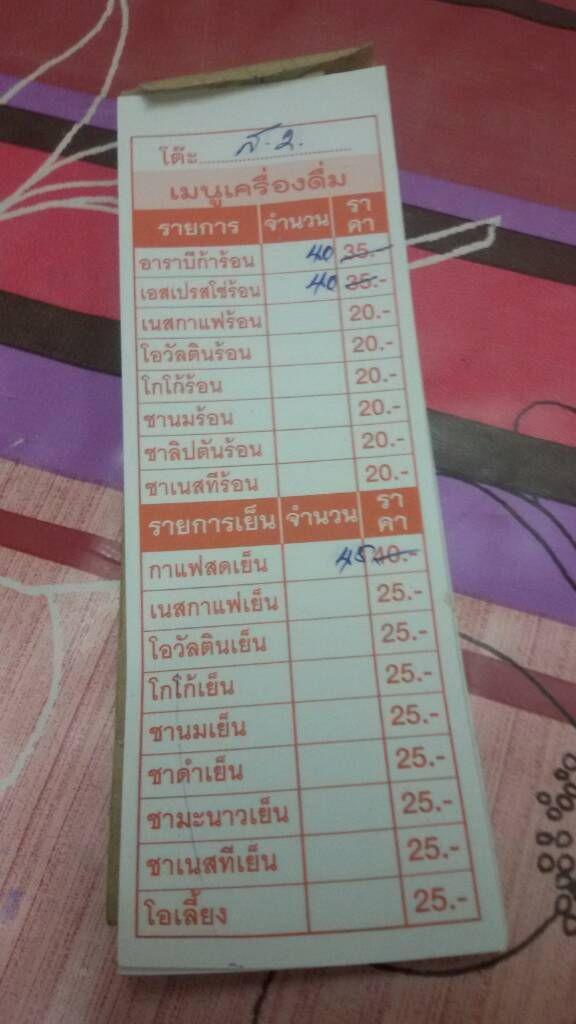 โต๊ะ.......ส.2.......
เมนูเครื่องดื่ม
รายการ จำนวน ราคา
อาราบีก้าร้อน 40 35.-
เอสเปรสโซ่ร้อน 40 35.-
เนสกาแฟร้อน 20.-
โอวัลตินร้อน 20.-
โกโก้ร้อน 20.-
ชานมร้อน 20.-
ชาลิปตันร้อน 20.-
ชาเนสทีร้อน 20.-
รายการเย็น จำนวน ราคา
กาแฟสดเย็น 45 40.-
เนสกาแฟเย็น 25.-
โอวัลตินเย็น 25.-
โกโก้เย็น 25.-
ชานมเย็น 25.-
ชาดำเย็น 25.-
ชามะนาวเย็น 25.-
ชาเนสทีเย็น 25.-
โอเลี้ยง 25.-